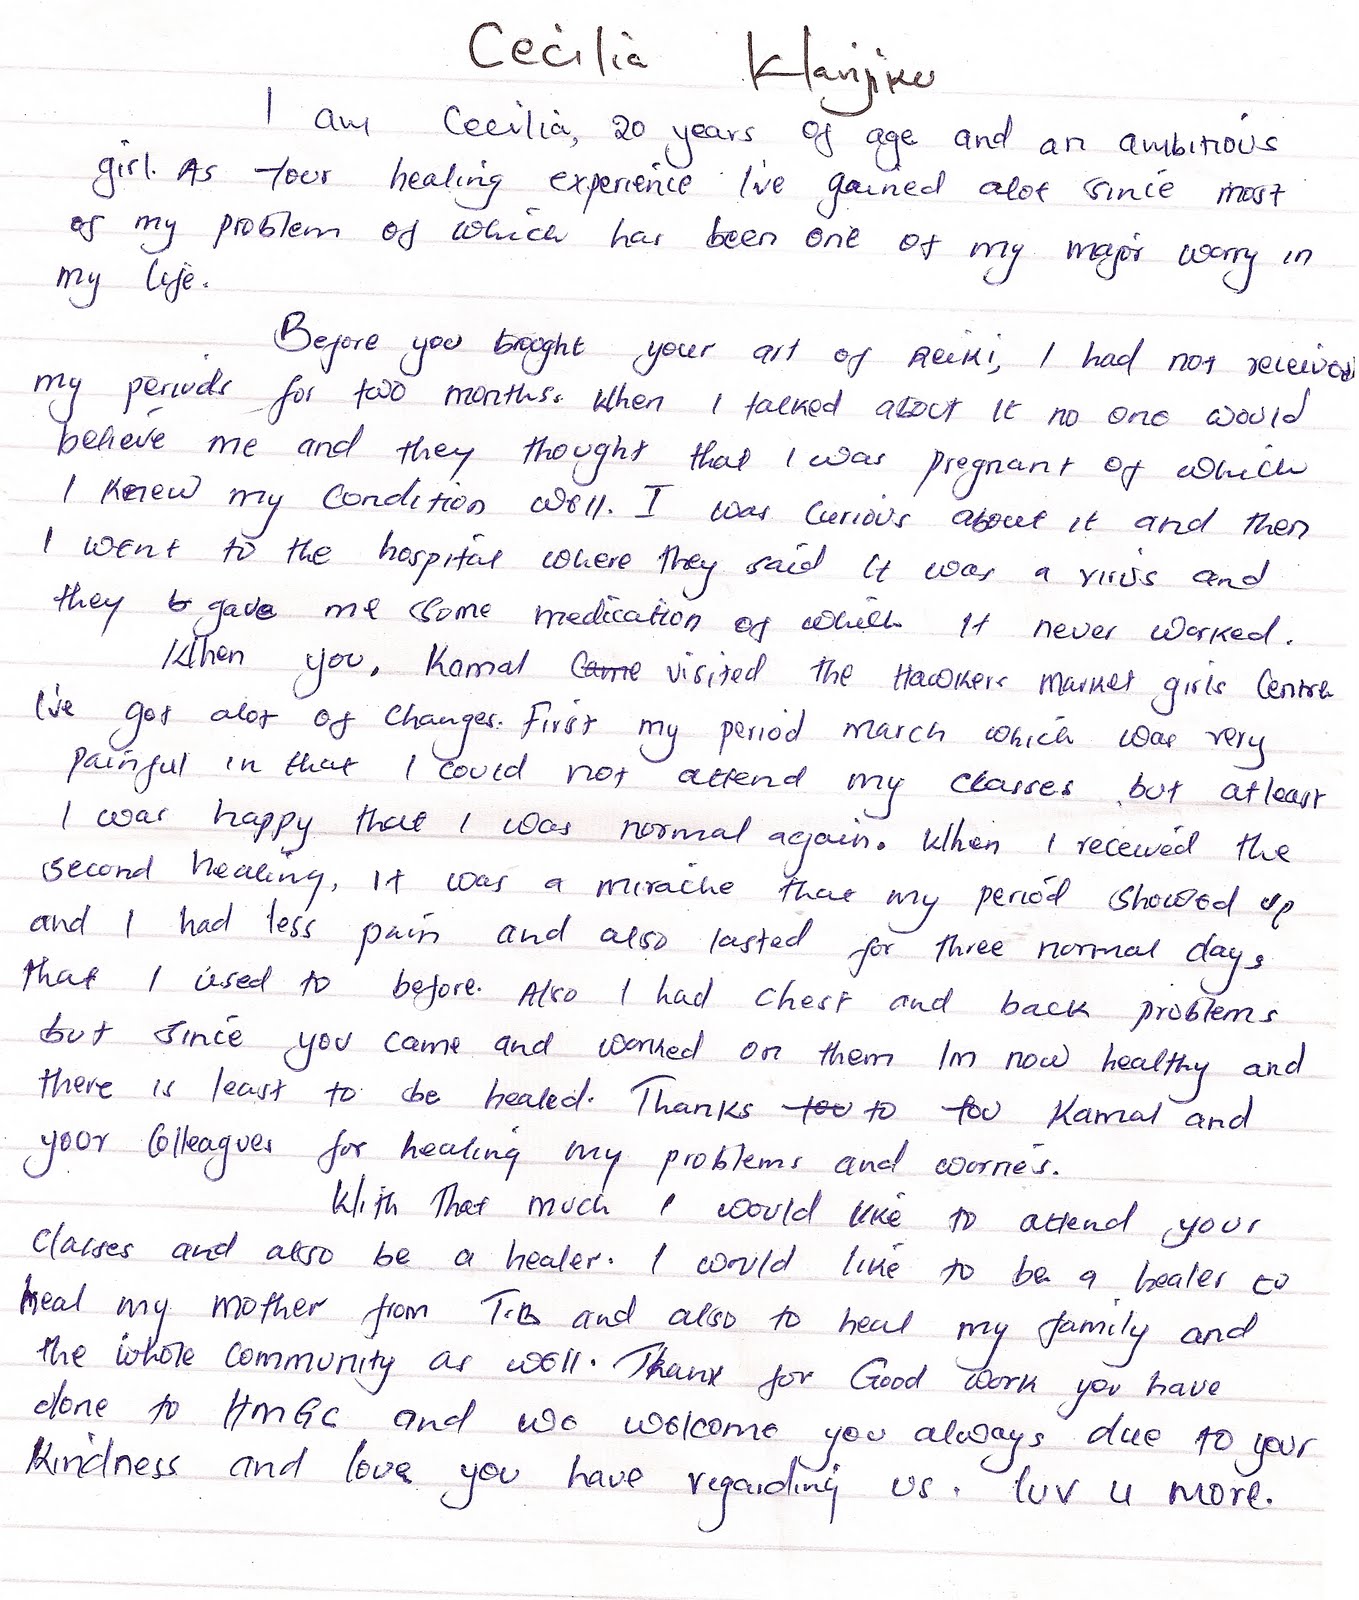 Cecilia Wanjiku
I am Cecilia, 20 years of age and an ambitious
girl. As your healing experience I've gained alot since most
of my problem of which has been one of my major worry in
my life.
Before you brought your art of Reiki, I had not received
my periods for two months. When I talked about it no one would
believe me and they thought that I was pregnant of which
I knew my condition well. I was curious about it and then
I went to the hospital where they said it was a virus and
they gave me some medication of which it never worked.
When you, Kamal came visited the Hawkers market girls Centre
I've got alot of changes. First my period march which was very
painful in that I could not attend my classes but atleast
I was happy that I was normal again. When I received the
second healing, it was a mirache that my period showed up
and I had less pain and also lasted for three normal days
that I used to before. Also I had chest and back problems
but since you came and worked on them Im now healthy and
there is least to be healed. Thanks too to you Kamal and
your Colleagues for healing my problems and worries.
With that much I would like to attend your
classes and also be a healer. I would like to be a healer to
heal my mother from T.B and also to heal my family and
the whole community as well. Thank for Good work you have
done to HMGC and we welcome you always due to your
kindness and love you have regarding us. luv u more.